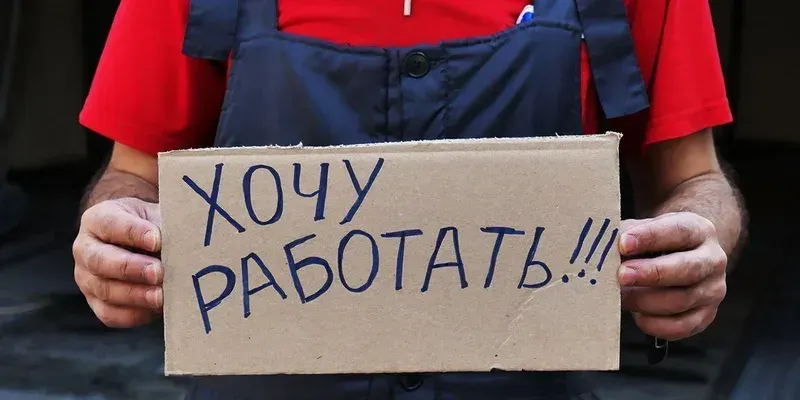 ХОЧУ
РАБОТАТЬ!!!